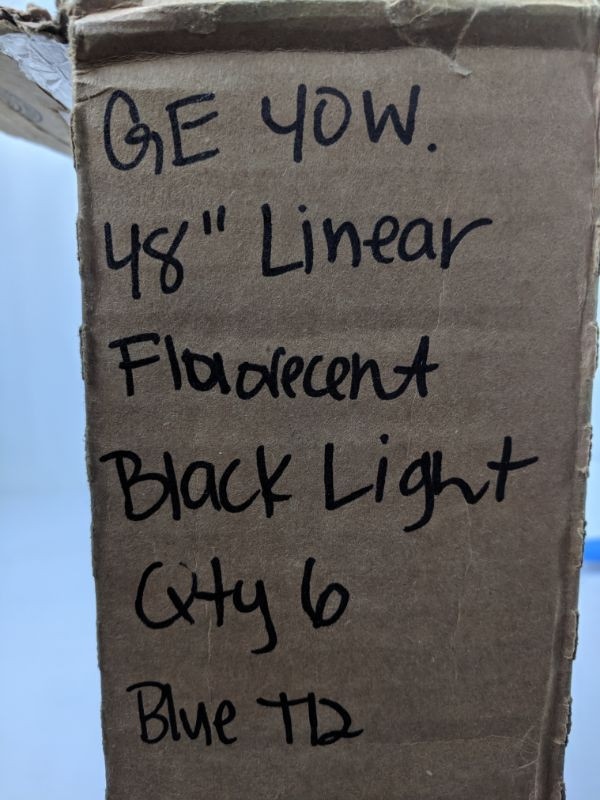 GE 40W.
48" Linear
Fluorecent
Black Light
Qty 6
Blue T12